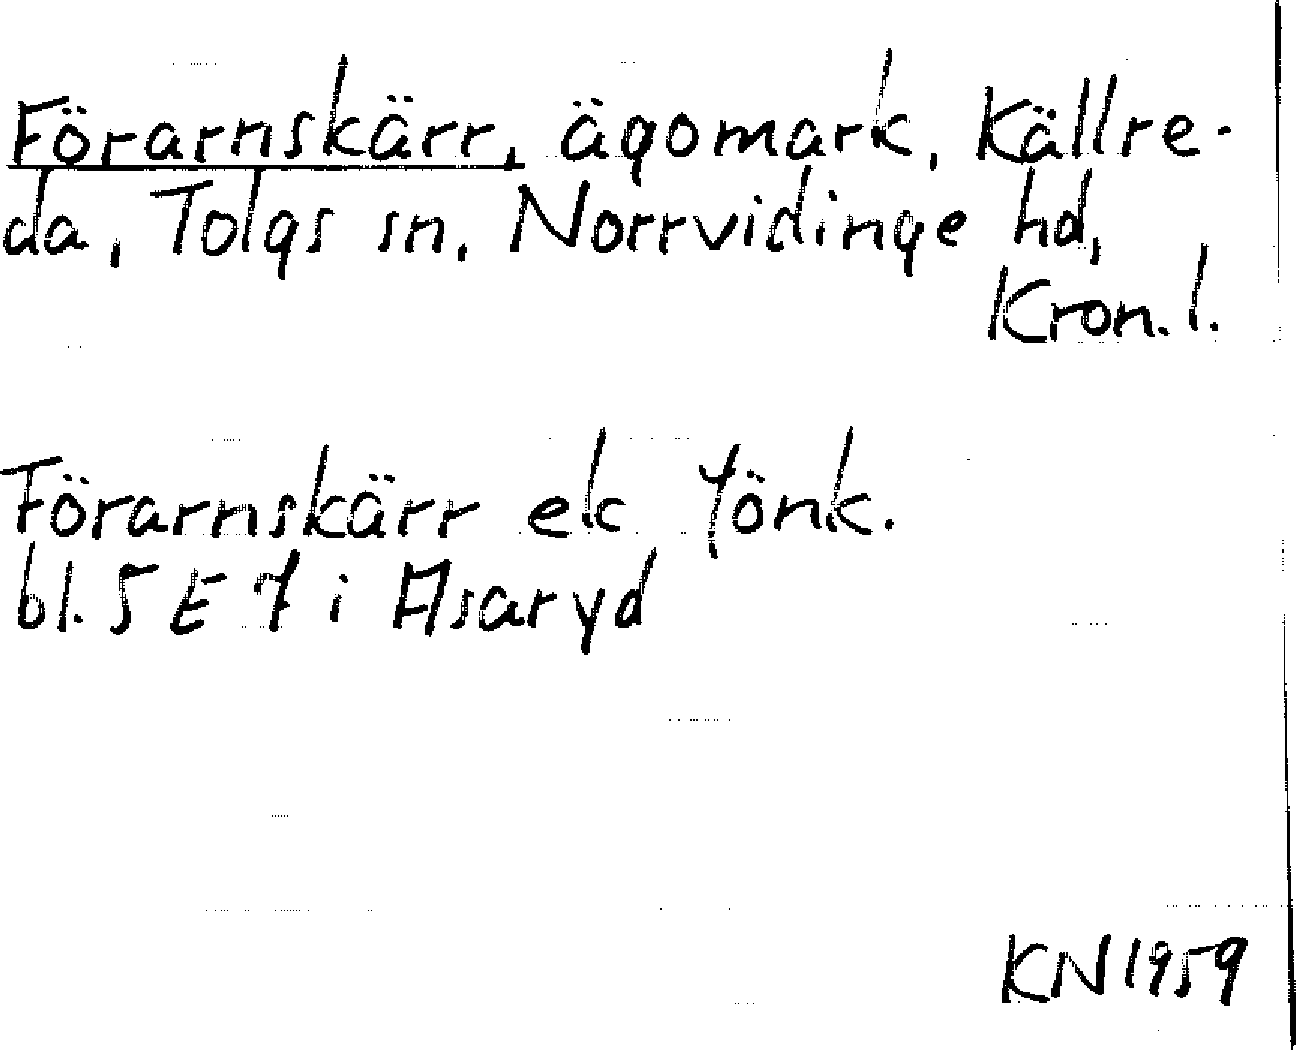 Förarnskärr, ägomark, Källre-
da, Tolgs sn, Norrvidinge hd,
Kron. l.
Förarnskärr ek Jönk.
bl. 5 E 7 i Asaryd
KN 1959